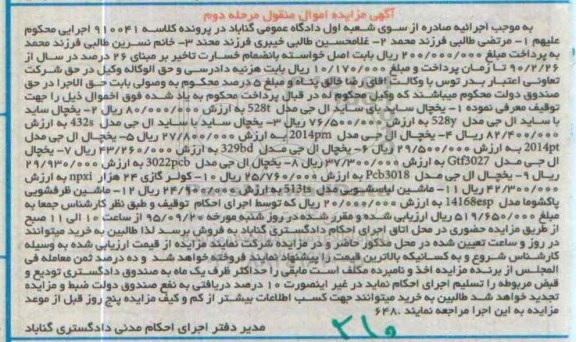 آگهی مزایده اموال منقول مرحله دوم
به موجب اجرائیه صادره از سوی شعبه اول دادگاه عمومی گناباد در پرونده کلاسه ۹۱۰۰۴۱ اجرایی محکوم
علیهم ۱- مرتضی طالبی فرزند محمد ۲- غلامحسین طالبی خیبری فرزند محمد ۳- خانم نسرین طالبی فرزند محمد
به پرداخت مبلغ ۲۰۰/۰۰۰/۰۰۰ ریال بابت اصل خواسته بانضمام خسارت تاخیر بر مبنای ۲۶ درصد در سال از
۹۰/۲/۲۶ تا زمان پرداخت و مبلغ ۱۰/۱۷۰/۰۰۰ ریال بابت هزینه دادرسی و حق الوکاله وکیل در حق شرکت
تعاونی اعتبار بدر توس با وکالت آقای رضا خالق پناه و مبلغ ۵ درصد محکوم به وصولی بابت حق الاجرا در حق
صندوق دولت محکوم میباشند که وکیل محکوم له در قبال پرداخت محکوم به یاد شده فوق اموال ذیل را جهت
توقیف معرفی نموده ۱- یخچال ساید بای ساید ال جی مدل 528t به ارزش ۸۰/۰۰۰/۰۰۰ ریال ۲- یخچال ساید
با ساید ال جی مدل 528y به ارزش ۷۶/۵۰۰/۰۰۰ ریال ۳- یخچال ساید با ساید ال جی مدل 432s به ارزش
۸۲/۴۰۰/۰۰۰ ریال ۴- یخچال ال جی مدل 2014pm به ارزش ۲۷/۸۰۰/۰۰۰ ریال ۵- یخچال ال جی مدل
2014pt به ارزش ۲۹/۵۰۰/۰۰۰ ریال ۶- یخچال ال جی مدل 329bd به ارزش ۴۳/۲۶۰/۰۰۰ ریال ۷- یخچال
ال جی مدل Gtf3027 به ارزش ۳۷/۳۰۰/۰۰۰ ریال ۸- یخچال ال جی مدل 3022pcb به ارزش ۲۹/۹۳۰/۰۰۰
ریال ۹- یخچال ال جی مدل Pcb3018 به ارزش ۲۵/۷۶۰/۰۰۰ ریال ۱۰- کولر گازی ۲۴ هزار npxi به ارزش
۴۲/۳۰۰/۰۰۰ ریال ۱۱- ماشین لباسشویی مدل 513ts به ارزش ۲۴/۹۰۰/۰۰۰ ریال ۱۲- ماشین ظرفشویی
پاکشوما مدل 14168esp به ارزش ۲۰/۰۰۰/۰۰۰ ریال که توسط اجرای احکام توقیف و طبق نظر کارشناس جمعا به
مبلغ ۵۱۹/۶۵۰/۰۰۰ ریال ارزیابی شده و مقرر شده در روز شنبه مورخه ۹۵/۰۹/۲۰ از ساعت ۱۰ الی ۱۱ صبح
از طریق مزایده حضوری در محل اتاق اجرای احکام دادگستری گناباد به فروش برسد لذا طالبین به خرید میتوانند
در روز و ساعت تعیین شده در محل مذکور حاضر و در مزایده شرکت نمایند مزایده از قیمت ارزیابی شده به وسیله
کارشناس شروع و به کسانیکه بالاترین قیمت را پیشنهاد نمایند فروخته خواهد شد و ده درصد ثمن معامله فی
المجلس از برنده مزایده اخذ و نامبرده مکلف است مابقی را حداکثر ظرف یک ماه به صندوق دادگستری تودیع و
قبض مربوطه را تسلیم اجرای احکام نماید در غیر اینصورت ۱۰ درصد دریافتی به نفع صندوق دولت ضبط و مزایده
تجدید خواهد شد طالبین به خرید میتوانند جهت کسب اطلاعات بیشتر از کم و کیف مزایده پنج روز قبل از موعد
مزایده به این اجرا مراجعه نمایند .۶۴۸
مدیر دفتر اجرای احکام مدنی دادگستری گناباد